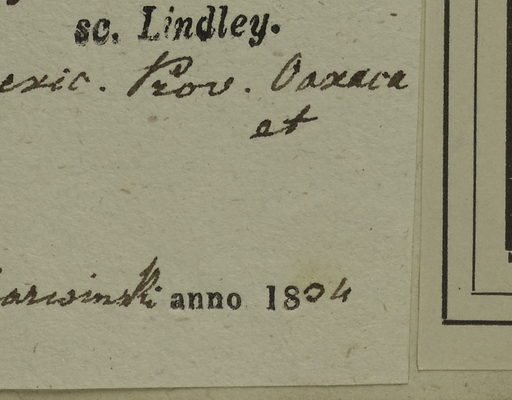 sc. Lindley.
exic. Prov. Oaxaca
et
arwinski anno 1834